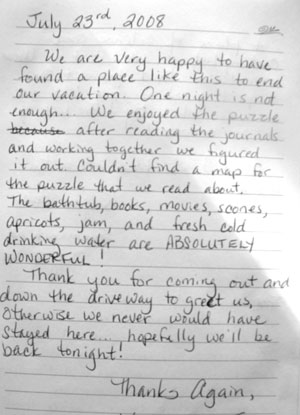 July 23rd, 2008
We are very happy to have
found a place like this to end
our vacation. One night is not
enough... We enjoyed the puzzle
because after reading the journals
and working together we figured
it out. Couldn't find a map for
the puzzle that we read about.
The bathtub, books, movies, scones,
apricots, jam, and fresh cold
drinking water are ABSOLUTELY
WONDERFUL!
Thank you for coming out and
down the driveway to greet us,
otherwise we never would have
stayed here... hopefully we'll be
back tonight!
Thanks Again,